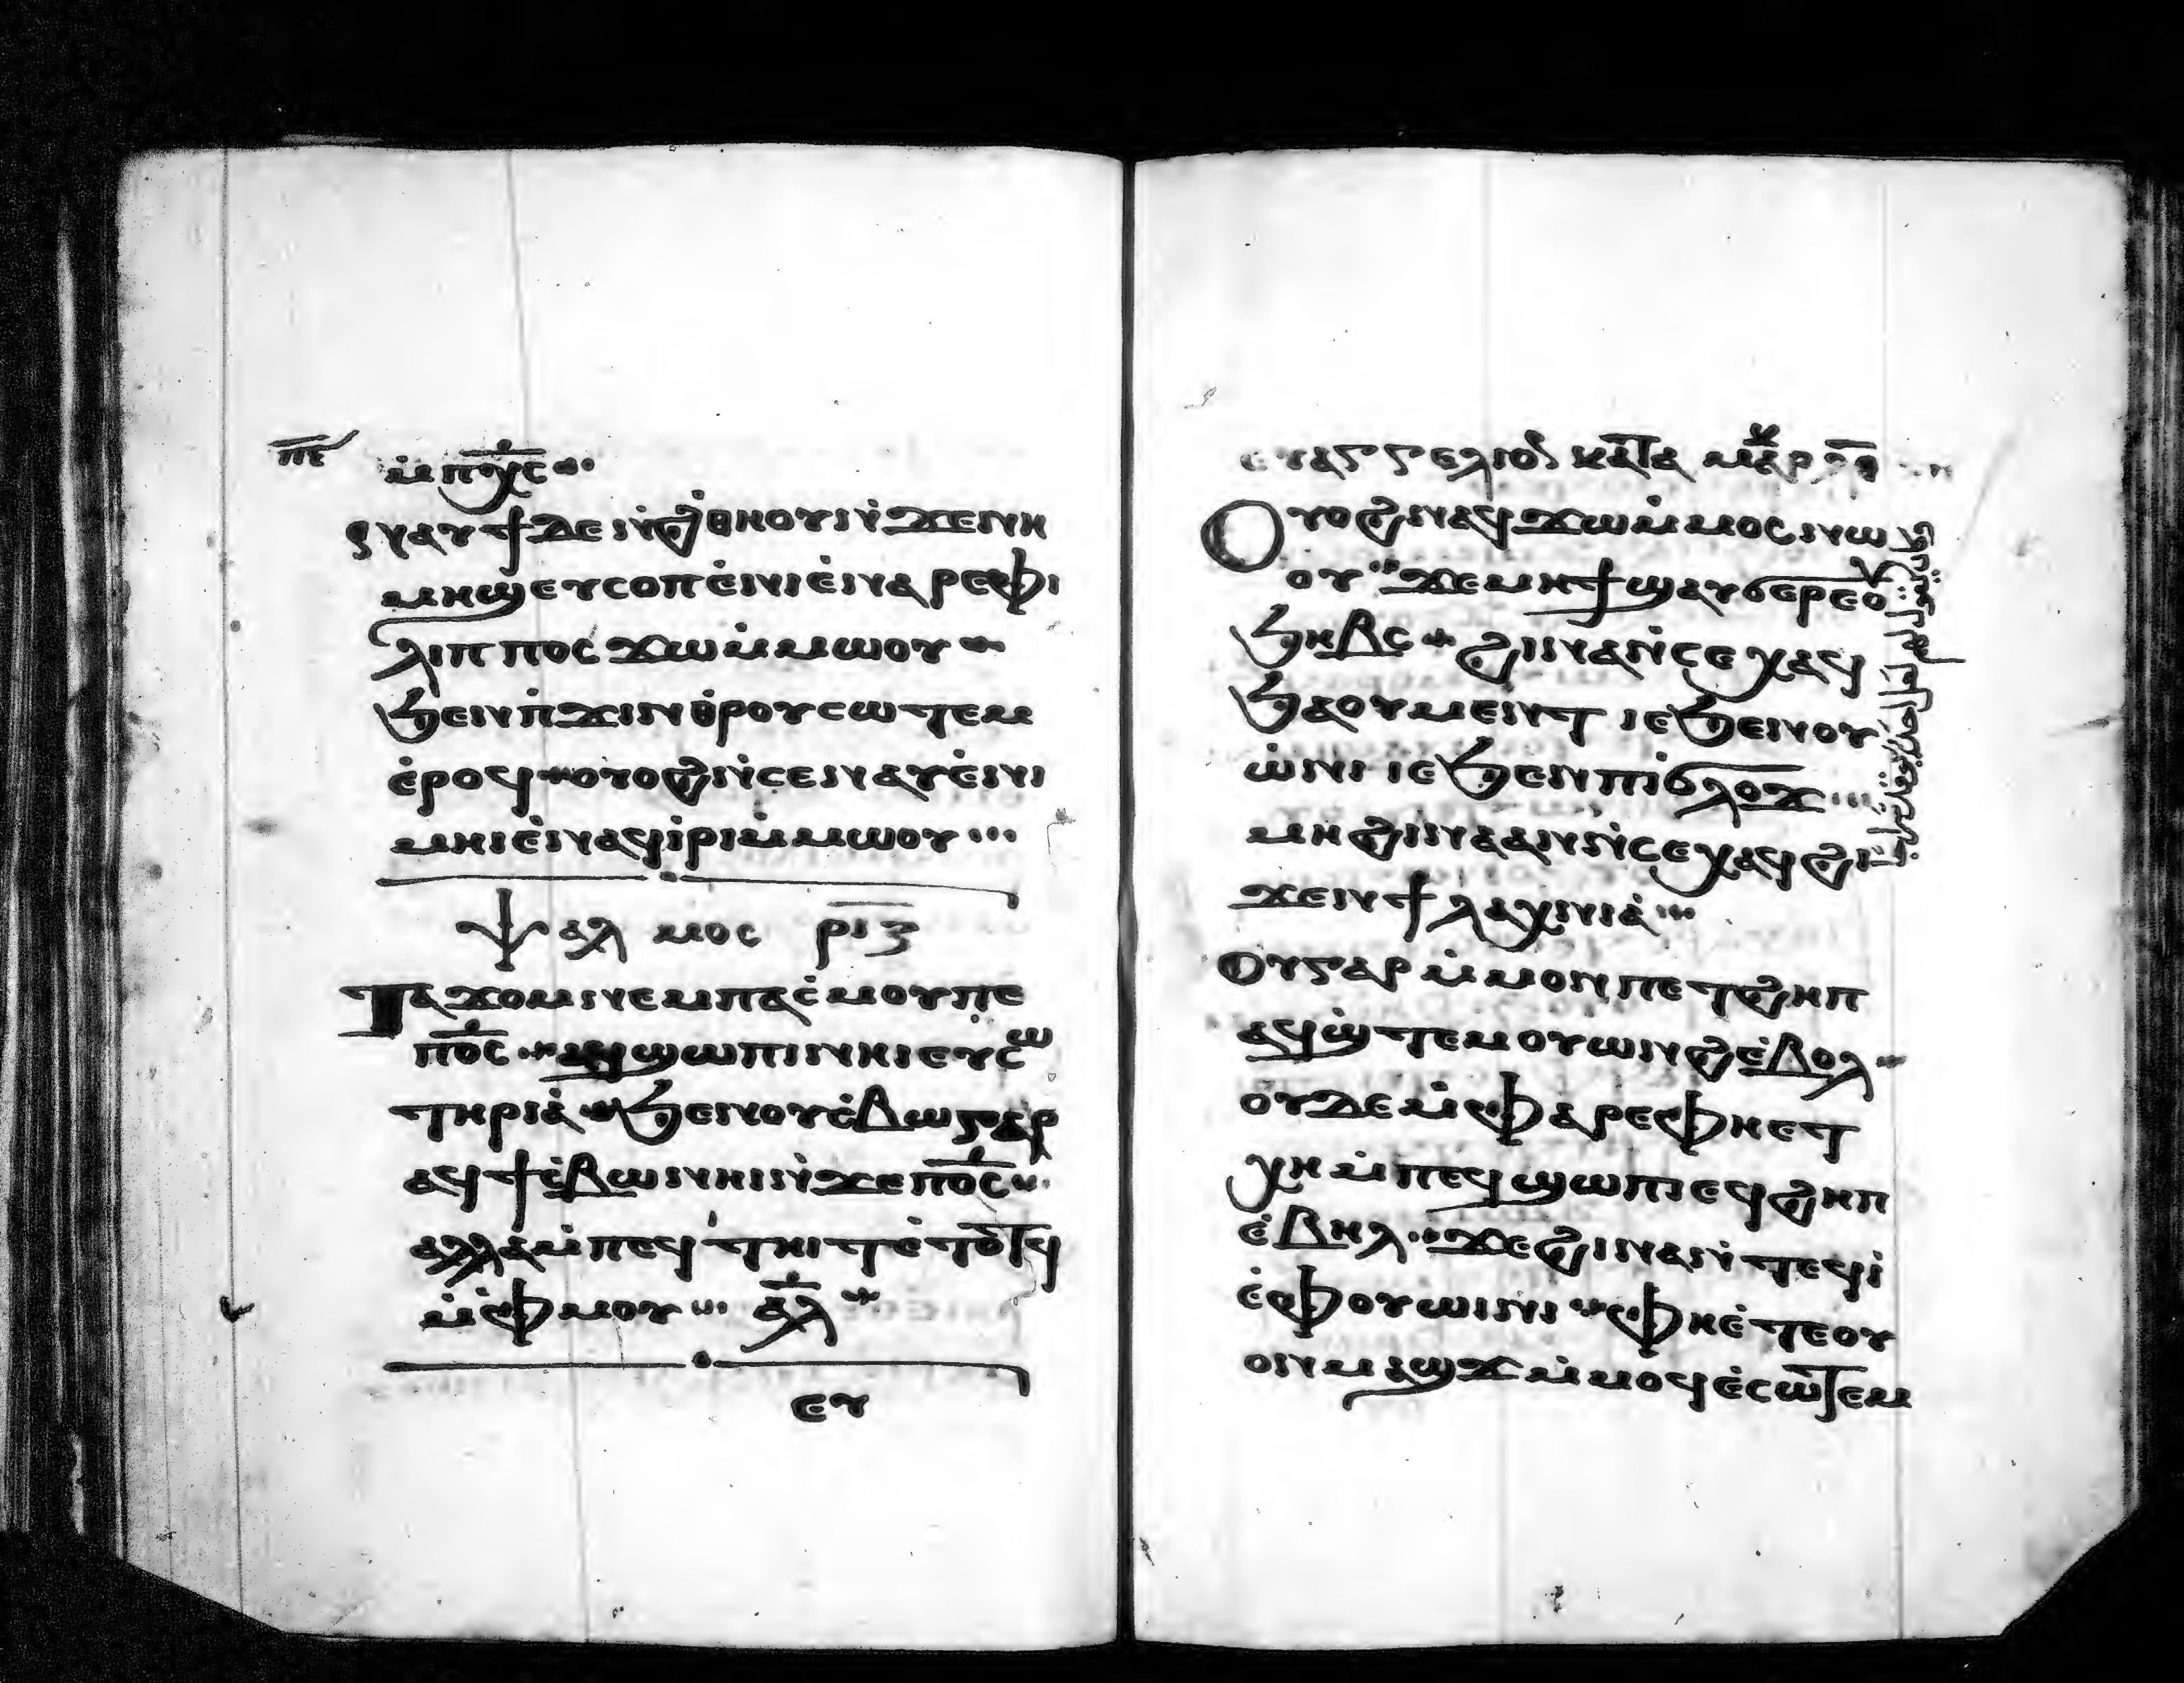 ⲡⲉ
ⲙ̇ⲡⲭ̅ⲥ
ⲋ ⲛⲁⲩϯⲇⲉ ⲛ̇ϩⲑⲏⲟⲩ ⲛ̇ϫⲉⲛⲓⲙⲏ
ⲙⲏϣ ⲉⲩⲥⲟⲡ ⲉ̇ⲛⲓⲉ̇ⲛⲁⲣⲉⲫⲓ
ⲗⲓⲡⲡⲟⲥ ϫⲱ ⲙ̇ⲙⲱⲟⲩ
ϧⲉⲛⲡ̇ϫⲓⲛⲑ̇ⲣⲟⲩⲥⲱⲧⲉⲙ
ⲉ̇ⲣⲟϥ ⲟⲩⲟϩ ⲛ̇ⲥⲉⲛⲁⲩ ⲉ̇ⲛⲓ
ⲙⲏⲓⲉ̇ⲛⲁϥⲓ̇ⲣⲓ ⲙ̇ⲙⲱⲟⲩ
ⲯⲁⲗⲙⲟⲥ ⲣⲓⲍ
ⲧⲁϫⲟⲙ ⲛⲉⲙ ⲡⲁⲥ̇ⲙⲟⲩ ⲡⲉ
ⲡⲟ̅ⲥ̅ ⲁϥϣⲱⲡⲓ ⲛⲏⲓ ⲉⲩⲥⲱ
ⲧⲏⲣⲓⲁ̇ ϧⲉⲛⲟⲩⲥ̇ⲃⲱ ⲅⲁⲣ
ⲁϥϯⲥ̇ⲃⲱ ⲛⲏⲓ ⲛ̇ϫⲉⲡⲟ̅ⲥ̅
ⲁⲗⲗⲁ ⲙ̇ⲡⲉϥⲧⲏⲓⲧ ⲉ̇ⲧⲟⲧϥ
ⲙ̇ⲫⲙⲟⲩ ⲁ̅ⲗ̅
ⲉⲩ
ⲉⲩⲁⲅⲅⲉⲗⲓⲟⲛ ⲕⲁⲧⲁ ⲙⲁⲣⲕ
ⲟⲩⲟϩ ⲛⲁϥϫⲱ ⲙ̇ⲙⲟⲥ ⲛⲱ
ⲟⲩ ϫⲉⲙⲏϯ ϣⲁⲩϭⲉⲣⲉⲟⲩ
ϧⲏⲃⲥ ϩⲓⲛⲁ ⲛ̇ⲥⲉⲭⲁϥ
ϧⲁⲟⲩⲙⲉⲛⲧ ⲓⲉ ϧⲉⲛⲟⲩ
ⲱ̇ⲓⲛⲓ ⲓⲉ ϧⲉⲛⲡⲓϭⲗⲟϫ
ⲙⲏ ϩⲓⲛⲁ ⲁⲛ ⲛ̇ⲥⲉⲭⲁϥ ϩⲓ
ϫⲉⲛϯⲗⲁⲭⲛⲓⲁ̇
ⲟⲩⲅⲁⲣ ⲙ̇ⲙⲟⲛ ⲡⲉⲧϩⲏⲡ
ⲁϥϣ̇ⲧⲉⲙⲟⲩⲱⲛϩ ⲉ̇ⲃⲟⲗ
ⲟⲩⲇⲉ ⲙ̇ⲫⲁⲣⲉⲫⲏⲉⲧ
ⲭⲏ ⲙ̇ⲡⲉϥϣⲱⲡⲓ ⲉϥϩⲏⲡ
ⲉ̇ⲃⲏⲗ ϫⲉϩⲓⲛⲁ ⲛ̇ⲧⲉϥⲓ̇
ⲉ̇ⲫⲟⲩⲱⲓⲛⲓ ⲫⲏⲉ̇ⲧⲉⲟⲩ
ⲟⲛⲙⲁϣϫ ⲙ̇ⲙⲟϥ ⲉ̇ⲥⲱⲧⲉⲙ